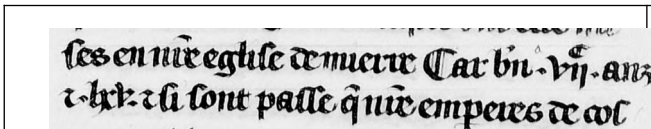 ses en nr̄e eglise de muerir Car bn̄ .vijᶜ. anz
⁊ .lxx. ⁊ si sont passe q̄ nr̄e emperes de cos